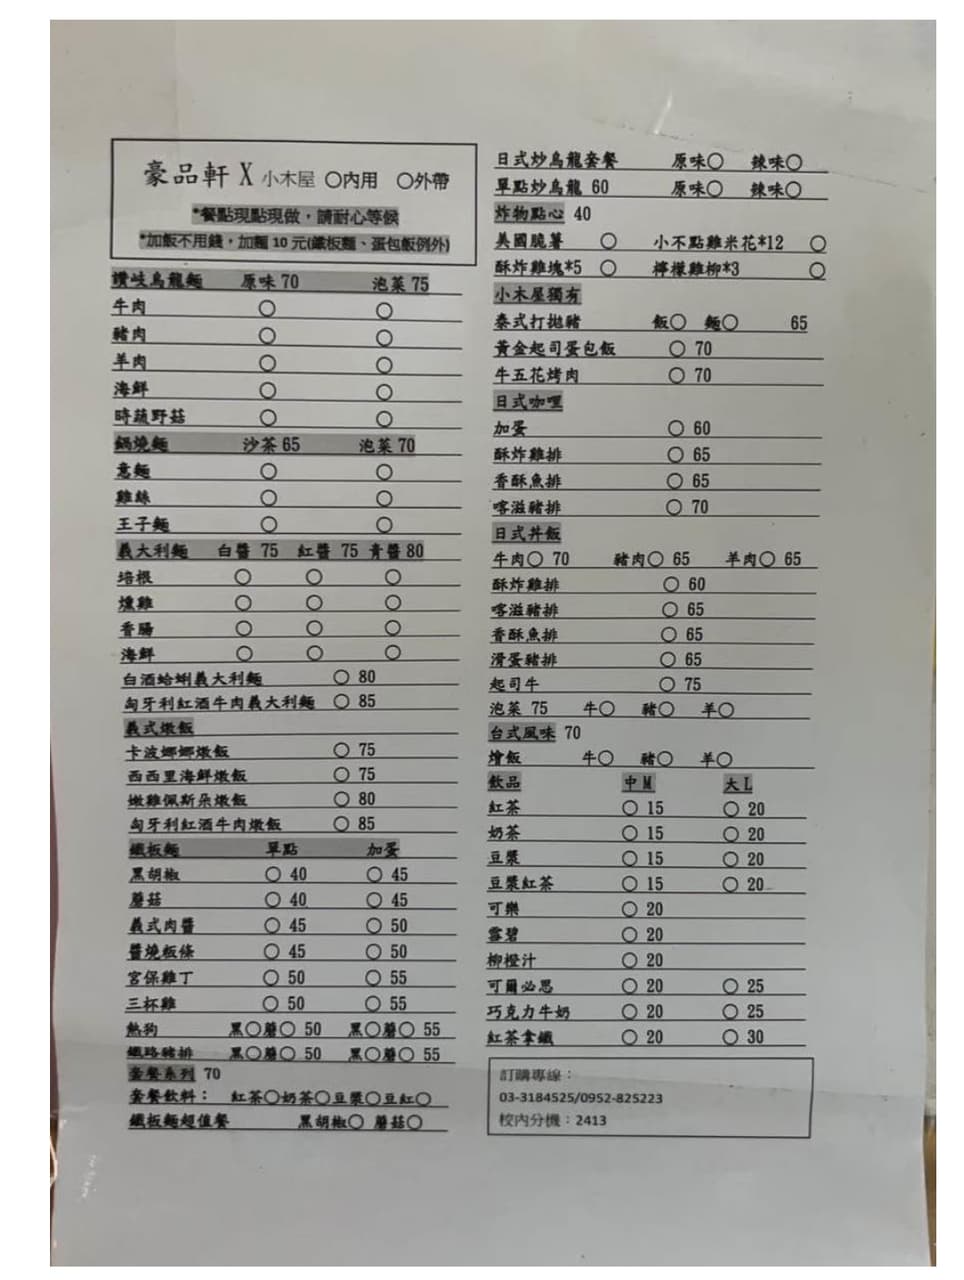 豪品軒 X 小木屋 〇內用 〇外帶
*餐點現點現做，請耐心等候
*加飯不用錢，加麵 10 元(鐵板麵、蛋包飯例外)
讚岐烏龍麵 原味 70 泡菜 75
牛肉 〇 〇
豬肉 〇 〇
羊肉 〇 〇
海鮮 〇 〇
時蔬野菇 〇 〇
鍋燒麵 沙茶 65 泡菜 70
意麵 〇 〇
雞絲 〇 〇
王子麵 〇 〇
義大利麵 白醬 75 紅醬 75 青醬 80
培根 〇 〇 〇
燻雞 〇 〇 〇
香腸 〇 〇 〇
海鮮 〇 〇 〇
白酒蛤蜊義大利麵 〇 80
匈牙利紅酒牛肉義大利麵 〇 85
義式燉飯
卡波娜娜燉飯 〇 75
西西里海鮮燉飯 〇 75
嫩雞佩斯朵燉飯 〇 80
匈牙利紅酒牛肉燉飯 〇 85
鐵板麵 單點 加蛋
黑胡椒 〇 40 〇 45
蘑菇 〇 40 〇 45
義式肉醬 〇 45 〇 50
醬燒粄條 〇 45 〇 50
宮保雞丁 〇 50 〇 55
三杯雞 〇 50 〇 55
熱狗 黑〇蘑〇 50 黑〇蘑〇 55
鐵路豬排 黑〇蘑〇 50 黑〇蘑〇 55
套餐系列 70
套餐飲料： 紅茶〇奶茶〇豆漿〇豆紅〇
鐵板麵超值餐 黑胡椒〇 蘑菇〇
日式炒烏龍套餐 原味〇 辣味〇
單點炒烏龍 60 原味〇 辣味〇
炸物點心 40
美國脆薯 〇 小不點雞米花*12 〇
酥炸雞塊*5 〇 檸檬雞柳*3 〇
小木屋獨有
泰式打拋豬 飯〇 麵〇 65
黃金起司蛋包飯 〇 70
牛五花烤肉 〇 70
日式咖哩
加蛋 〇 60
酥炸雞排 〇 65
香酥魚排 〇 65
喀滋豬排 〇 70
日式丼飯
牛肉〇 70 豬肉〇 65 羊肉〇 65
酥炸雞排 〇 60
喀滋豬排 〇 65
香酥魚排 〇 65
滑蛋豬排 〇 65
起司牛 〇 75
泡菜 75 牛〇 豬〇 羊〇
台式風味 70
燴飯 牛〇 豬〇 羊〇
飲品 中 M 大 L
紅茶 〇 15 〇 20
奶茶 〇 15 〇 20
豆漿 〇 15 〇 20
豆漿紅茶 〇 15 〇 20
可樂 〇 20
雪碧 〇 20
柳橙汁 〇 20
可爾必思 〇 20 〇 25
巧克力牛奶 〇 20 〇 25
紅茶拿鐵 〇 20 〇 30
訂購專線：
03-3184525/0952-825223
校內分機：2413